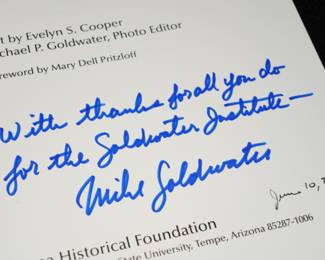 t by Evelyn S. Cooper
chael P. Goldwater, Photo Editor
oreword by Mary Dell Pritzloff
With thanks for all you do
for the Goldwater Institute—
Mike Goldwater
June 10, 2
Historical Foundation
State University, Tempe, Arizona 85287-1006